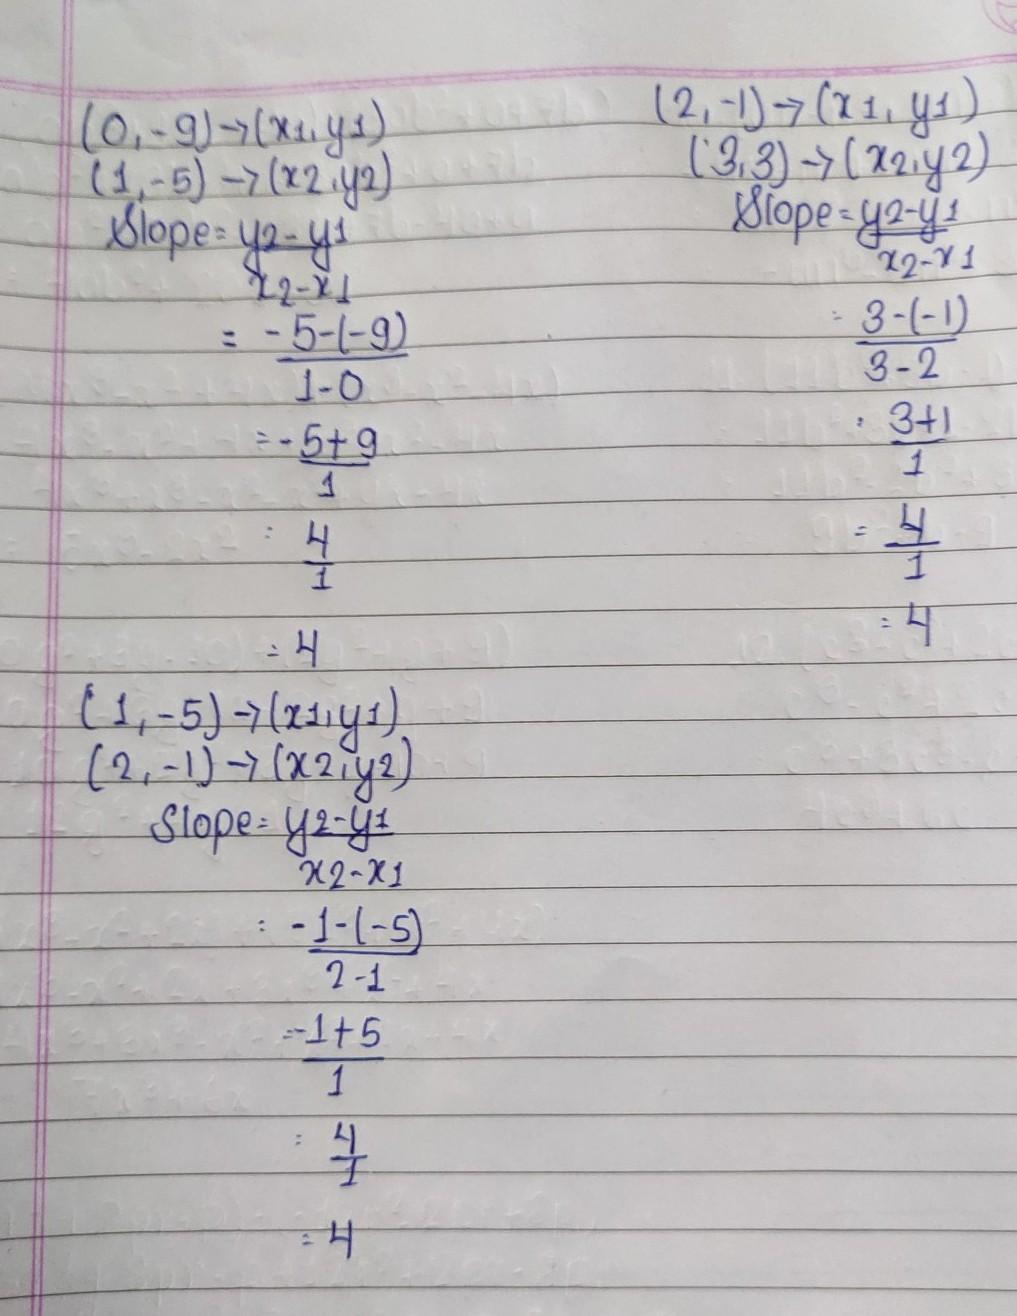 (0,-9)→(x1,y1)
(1,-5)→(x2,y2)
Slope=y2-y1
x2-x1
= -5-(-9)
1-0
=-5+9
1
= 4
1
= 4
(1,-5)→(x1,y1)
(2,-1)→(x2,y2)
Slope= y2-y1
x2-x1
= -1-(-5)
2-1
=-1+5
1
= 4
1
= 4
(2,-1)→(x1,y1)
(3,3)→(x2,y2)
Slope=y2-y1
x2-x1
= 3-(-1)
3-2
= 3+1
1
= 4
1
= 4